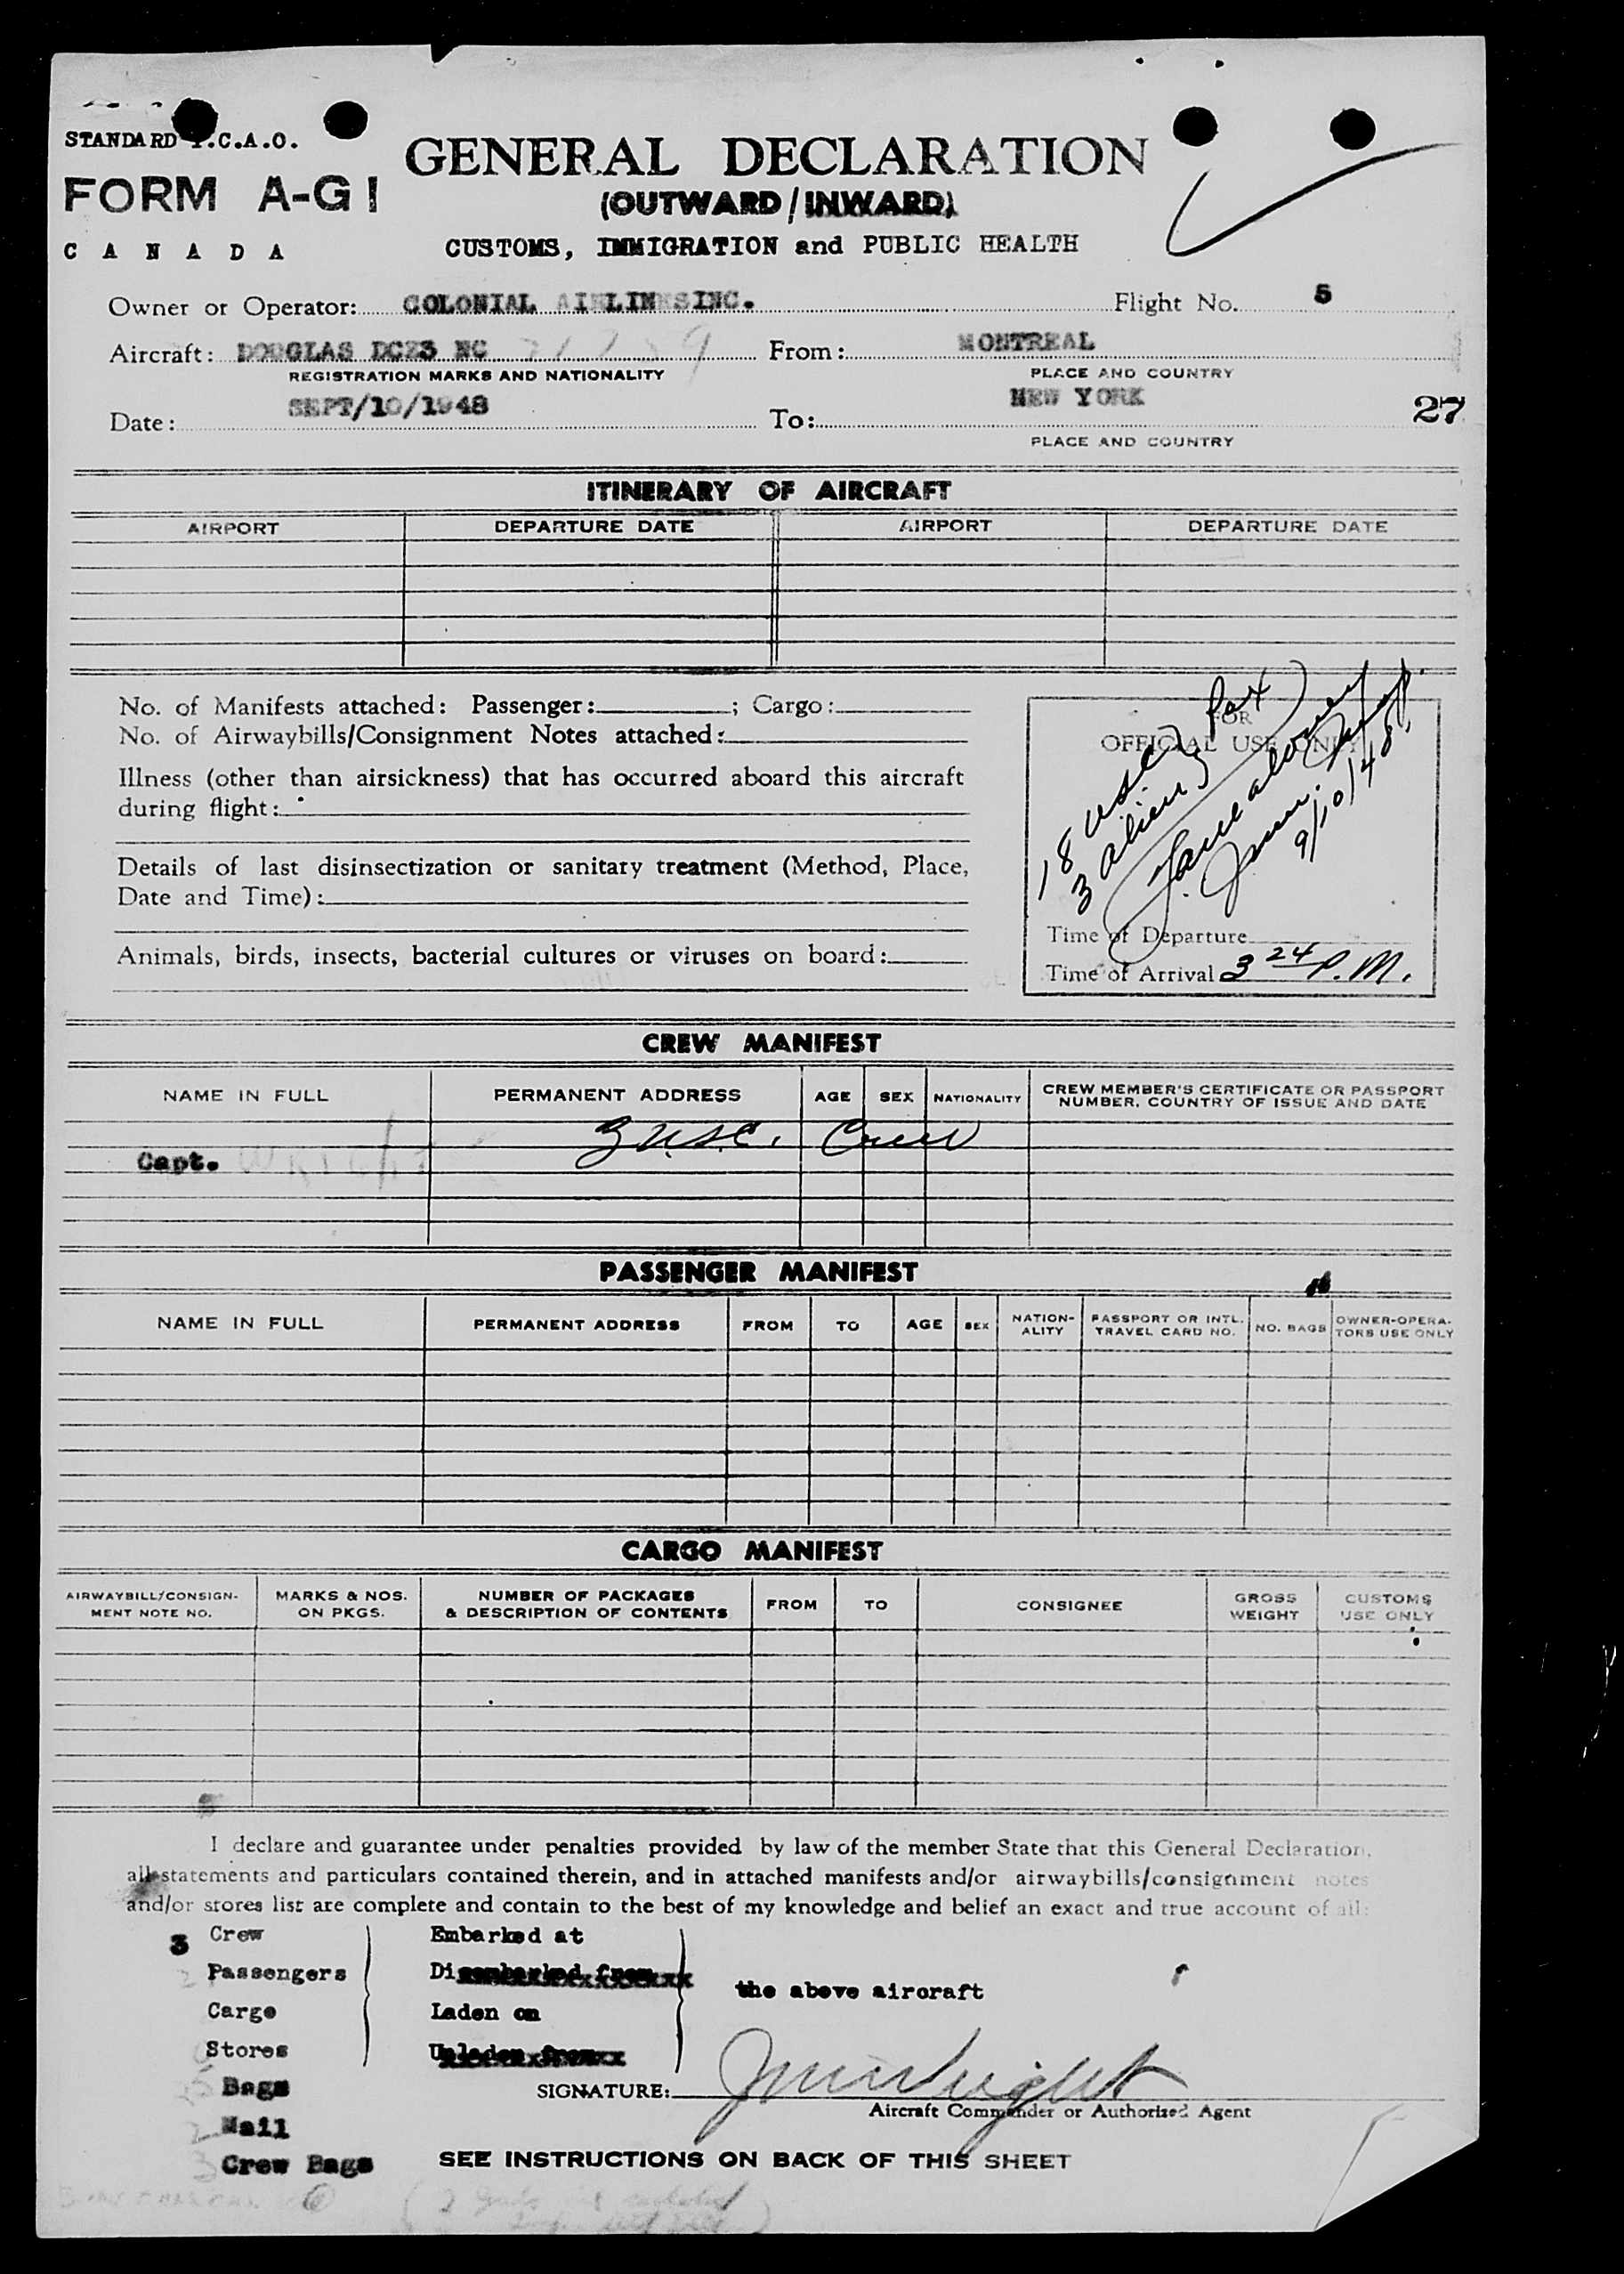 STANDARD I.C.A.O.
FORM A-G1
CANADA
GENERAL DECLARATION
(OUTWARD/INWARD)
CUSTOMS, IMMIGRATION and PUBLIC HEALTH
Owner or Operator: COLONIAL AIRLINES INC. Flight No. 5
Aircraft: DOUGLAS DC3 NC From: MONTREAL
REGISTRATION MARKS AND NATIONALITY PLACE AND COUNTRY
Date: SEPT/10/1948 To: NEW YORK 27
PLACE AND COUNTRY
ITINERARY OF AIRCRAFT
AIRPORT DEPARTURE DATE AIRPORT DEPARTURE DATE
No. of Manifests attached: Passenger: ; Cargo:
No. of Airwaybills/Consignment Notes attached:
Illness (other than airsickness) that has occurred aboard this aircraft
during flight:
Details of last disinsectization or sanitary treatment (Method, Place,
Date and Time):
Animals, birds, insects, bacterial cultures or viruses on board:
FOR
OFFICIAL USE ONLY
18 USC } Pax
3 aliens
Imm. Insp.
9/10/48
Time of Departure
Time of Arrival 3 24 P.M.
CREW MANIFEST
NAME IN FULL PERMANENT ADDRESS AGE SEX NATIONALITY CREW MEMBER'S CERTIFICATE OR PASSPORT
NUMBER, COUNTRY OF ISSUE AND DATE
3 USC. Crew
Capt. Wright
PASSENGER MANIFEST
NAME IN FULL PERMANENT ADDRESS FROM TO AGE SEX NATION-
ALITY PASSPORT OR INTL.
TRAVEL CARD NO. NO. BAGS OWNER-OPERA-
TORS USE ONLY
CARGO MANIFEST
AIRWAYBILL/CONSIGN-
MENT NOTE NO. MARKS & NOS.
ON PKGS. NUMBER OF PACKAGES
& DESCRIPTION OF CONTENTS FROM TO CONSIGNEE GROSS
WEIGHT CUSTOMS
USE ONLY
I declare and guarantee under penalties provided by law of the member State that this General Declaration,
all statements and particulars contained therein, and in attached manifests and/or airwaybills/consignment notes
and/or stores list are complete and contain to the best of my knowledge and belief an exact and true account of all:
3 Crew Embarked at
Passengers Disembarked from
the above aircraft
Cargo Laden on
Stores Unladen from
Bags
SIGNATURE: J M Wright
Aircraft Commander or Authorized Agent
2 Mail
3 Crew Bags
SEE INSTRUCTIONS ON BACK OF THIS SHEET